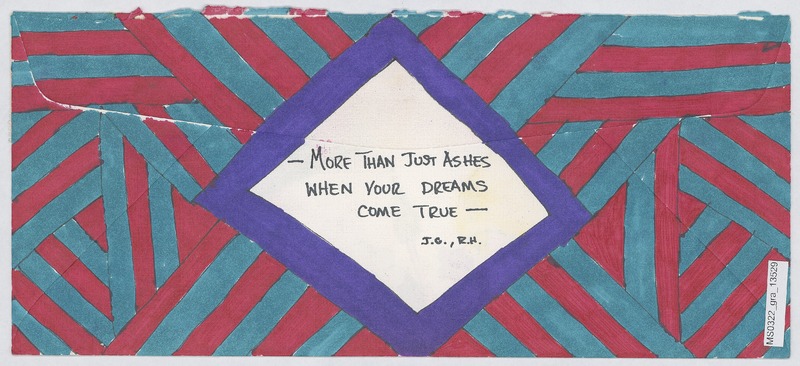 — MORE THAN JUST ASHES
WHEN YOUR DREAMS
COME TRUE —
J.G., R.H.
MS0322_gra_13529